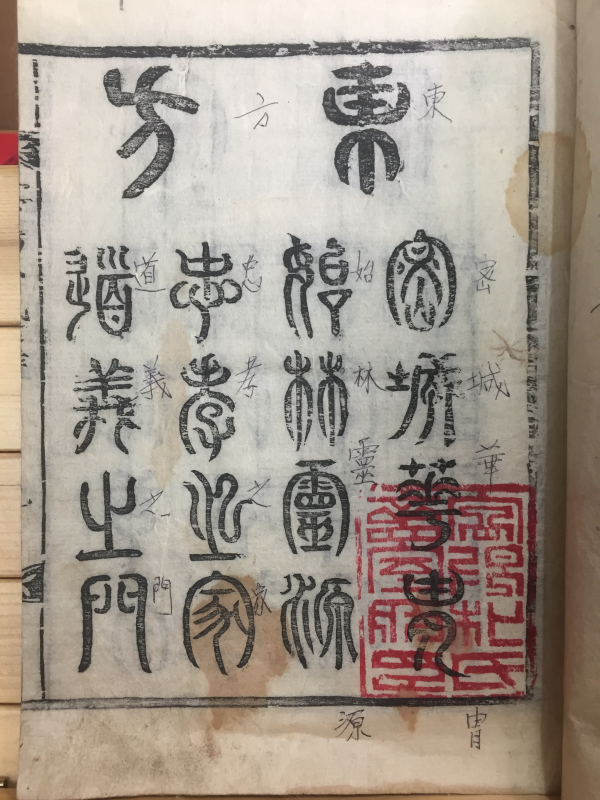 東方
東方
密城華胄
密城華胄
始林靈源
始林靈源
忠孝之家
忠孝之家
道義之門
道義之門